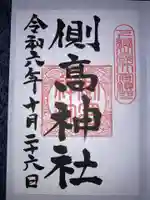 側高神社
令和六年十月二十六日